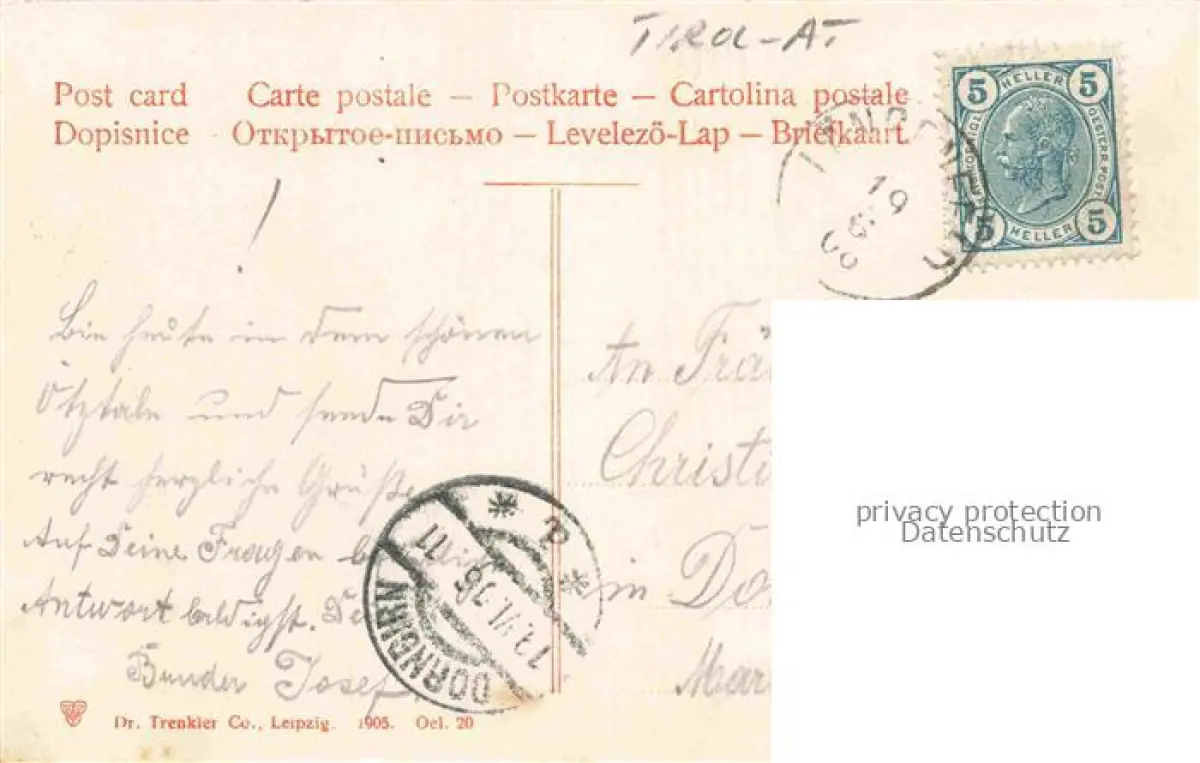 Tirol-AT
Post card Carte postale — Postkarte — Cartolina postale
Dopisnice — Открытое-письмо — Levelező-Lap — Briefkaart
5 HELLER 5
OESTERR. POST
5 HELLER 5
19
Bin heute in dem schönen
Ötztale und sende Dir
recht herzliche Grüße
Auf Deine Fragen
Antwort baldigst. De
Bruder Josef
An Fräu
Christi
in Do
Mar
DORNBIRN
VI
11
privacy protection
Datenschutz
Dr. Trenkler Co., Leipzig. 1905. Oel. 20